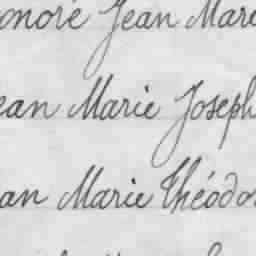 onoré Jean Marie
ean Marie Joseph
an Marie Théodo